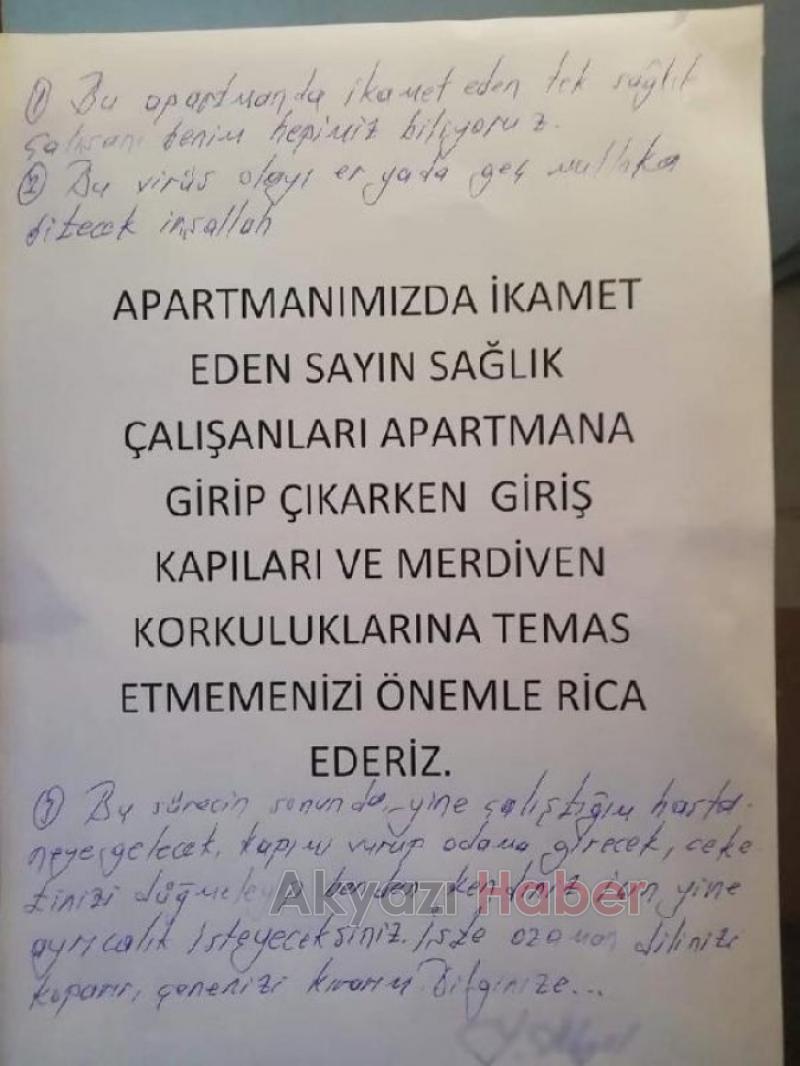 ① Bu apartmanda ikamet eden tek sağlık
çalışanı benim hepimiz biliyoruz.
② Bu virüs olayı er yada geç mutlaka
bitecek inşallah
APARTMANIMIZDA İKAMET
EDEN SAYIN SAĞLIK
ÇALIŞANLARI APARTMANA
GİRİP ÇIKARKEN GİRİŞ
KAPILARI VE MERDİVEN
KORKULUKLARINA TEMAS
ETMEMENİZİ ÖNEMLE RİCA
EDERİZ.
③ Bu sürecin sonunda, yine çalıştığım hasta-
neye gelecek, kapımı vurup odama girecek, ceke-
tinizi düğmeleyip benden kendiniz için yine
Akyazı Haber
ayrıcalık isteyeceksiniz. İşte ozaman dilinizi
koparır, çenenizi kırarım. Bilginize...